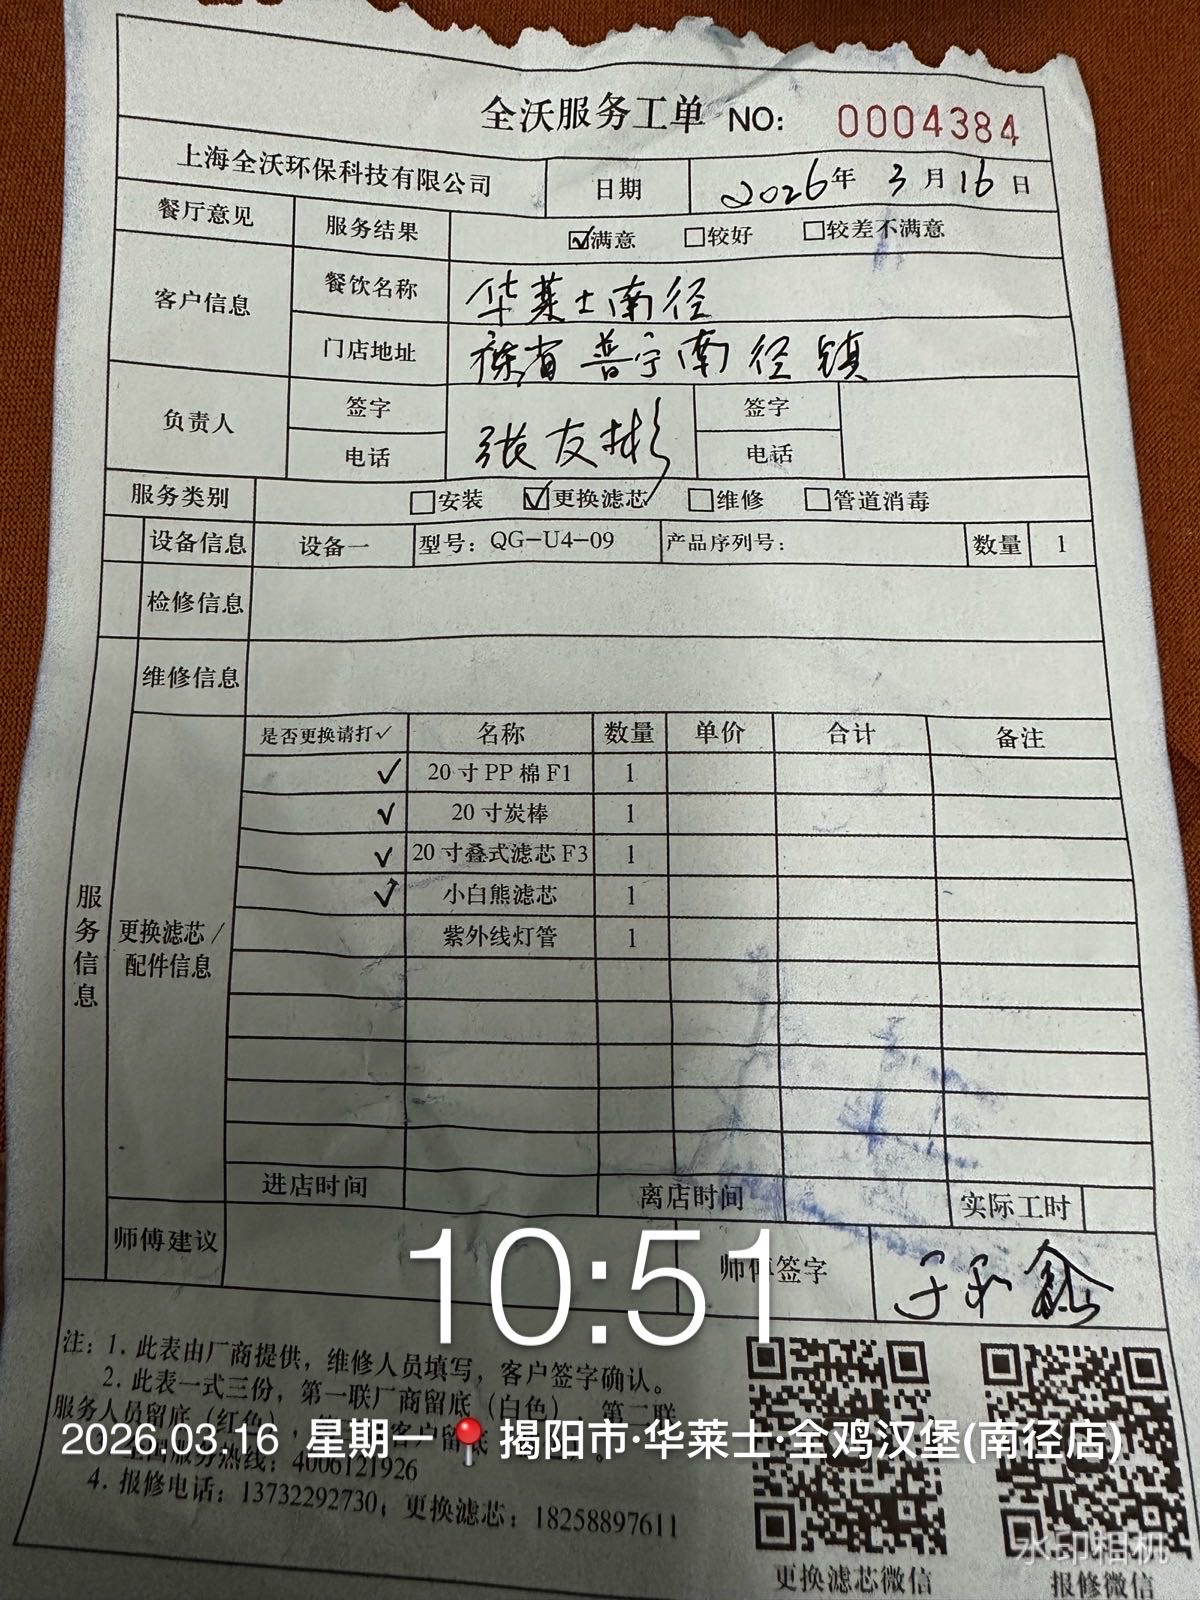 全沃服务工单 NO: 0004384
上海全沃环保科技有限公司 日期 2026年 3月16日
餐厅意见 服务结果 ☑满意 □较好 □较差不满意
客户信息 餐饮名称 华莱士南径
门店地址 普宁南径镇
负责人 签字 张友彬 签字
电话 电话
服务类别 □安装 ☑更换滤芯 □维修 □管道消毒
设备信息 设备一 型号：QG-U4-09 产品序列号： 数量 1
检修信息
维修信息
服务信息
更换滤芯/配件信息
是否更换请打✓ 名称 数量 单价 合计 备注
✓ 20寸PP棉F1 1
✓ 20寸炭棒 1
✓ 20寸叠式滤芯F3 1
✓ 小白熊滤芯 1
紫外线灯管 1
进店时间 离店时间 实际工时
师傅建议 师傅签字
10:51
注：1. 此表由厂商提供，维修人员填写，客户签字确认。
2. 此表一式三份，第一联厂商留底（白色），第二联
服务人员留底（红色），客户留底
全国服务热线：4006121926
4. 报修电话：13732292730；更换滤芯：18258897611
2026.03.16 星期一 揭阳市·华莱士·全鸡汉堡(南径店)
更换滤芯微信 报修微信
水印相机